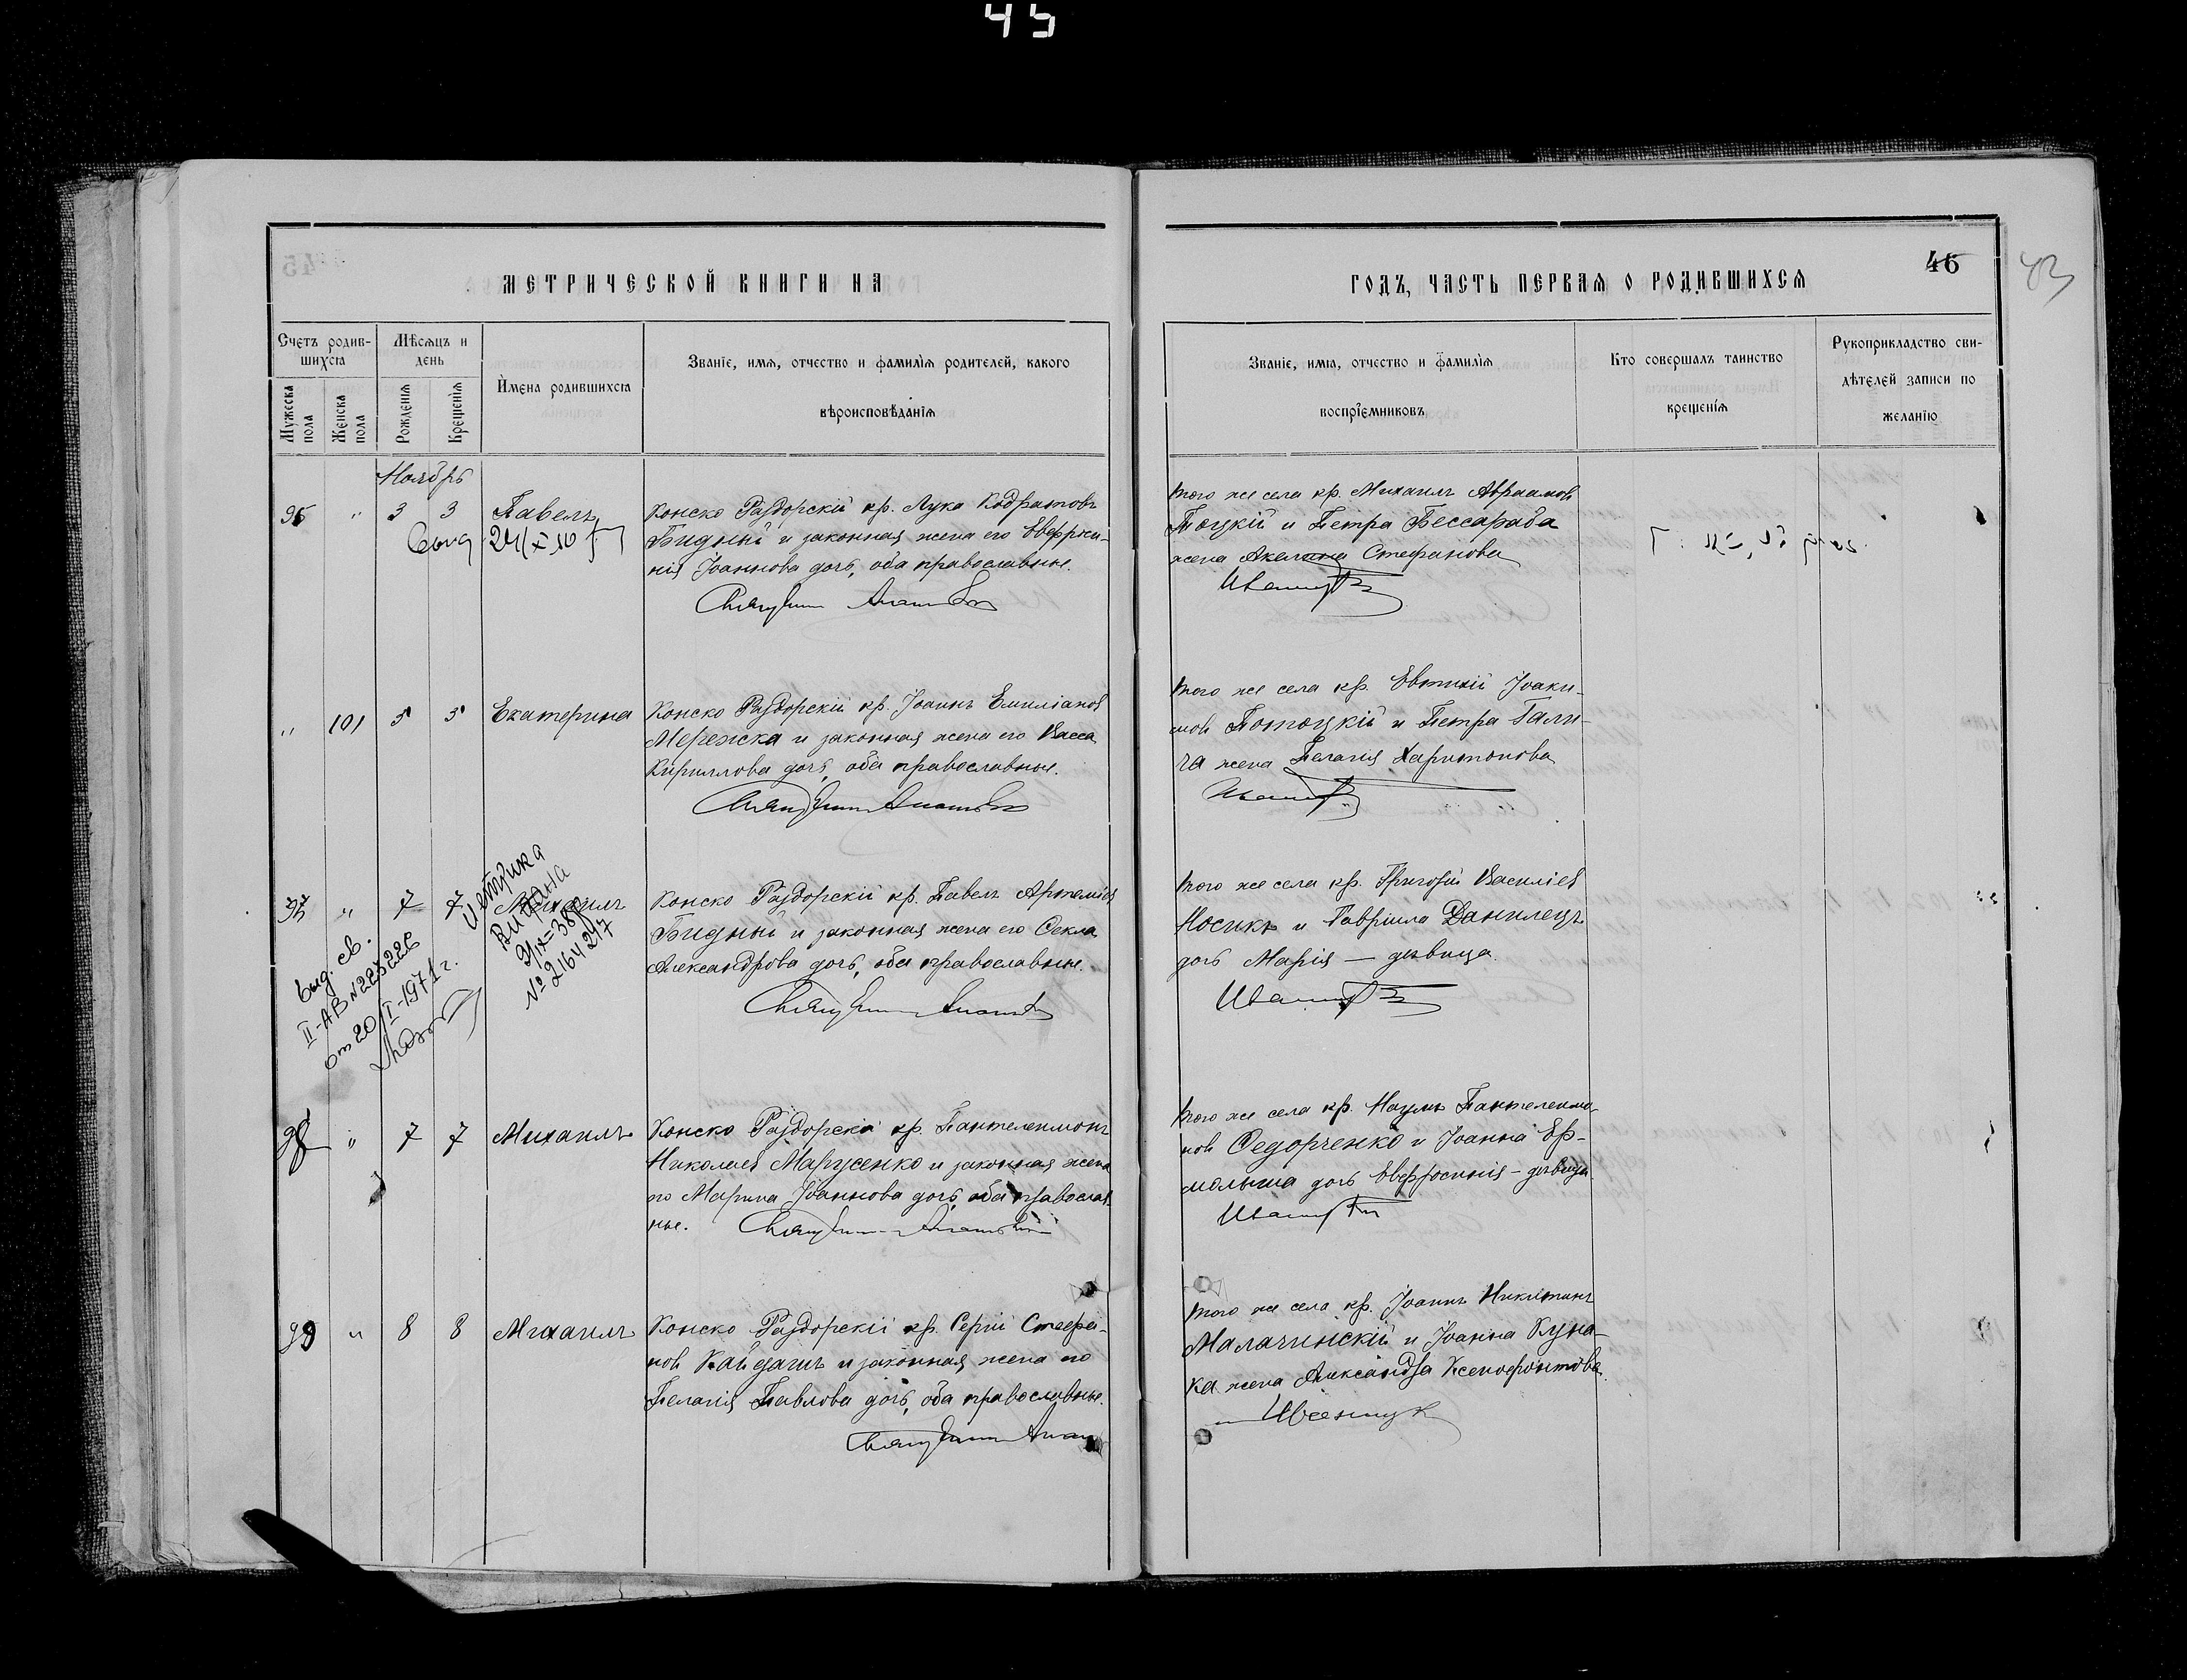 45
МЕТРИЧЕСКОЙ КНИГИ НА
ГОДЪ, ЧАСТЬ ПЕРВАЯ О РОДИВШИХСЯ
46
43
Счетъ родив-
шихся
Мѣсяцъ и
день
Имена родившихся
Званіе, имя, отчество и фамилія родителей, какого
вѣроисповѣданія
Мужеска пола
Женска пола
Рожденія
Крещенія
Званіе, имя, отчество и фамилія
воспріемниковъ
Кто совершалъ таинство
крещенія
Рукоприкладство сви-
дѣтелей записи по
желанію
Ноябрь
96 " 3 3 Павелъ
Конско Раздорскій кр. Лука Кодратовъ
Бидный и законная жена его Евфроси-
нія Іоаннова дочь, оба православные.
того же села кр. Михаилъ Авраамовъ
Тоцкій и Петра Бессараба
жена Акелина Стефанова
" 101 5 5 Екатерина
Конско Раздорскій кр. Іоаннъ Емиліановъ
Мережска и законная жена его Васса
Кириллова дочь, оба православные.
того же села кр. Евтихій Іоаки-
мовъ Потоцкій и Петра Гали-
ча жена Пелагія Харитонова
97 " 7 7 Михаилъ
Метрика
Видана
№ 2164247
выд. св.
II-АВ № 228226
от 20/I-1971 г.
Конско Раздорскій кр. Павелъ Артеміевъ
Бидный и законная жена его Фекла
Александрова дочь, оба православные.
того же села кр. Григорій Василіевъ
Носикъ и Гавріила Данилецъ
дочь Марія — дѣвица
98 " 7 7 Михаилъ
Конско Раздорскій кр. Пантелеимонъ
Николаевъ Марусенко и законная жена
его Марина Іоаннова дочь, оба православ-
ные.
того же села кр. Наумъ Пантелеимо-
новъ Федорченко и Іоанна Ер-
молыша дочь Евфросинія - дѣвица
99 " 8 8 Михаилъ
Конско Раздорскій кр. Сергій Стефа-
новъ Кайдашъ и законная жена его
Пелагія Павлова дочь, оба православные.
того же села кр. Іоаннъ Никитинъ
Малачинскій и Іоанна Куна-
ка жена Александра Ксенофонтова